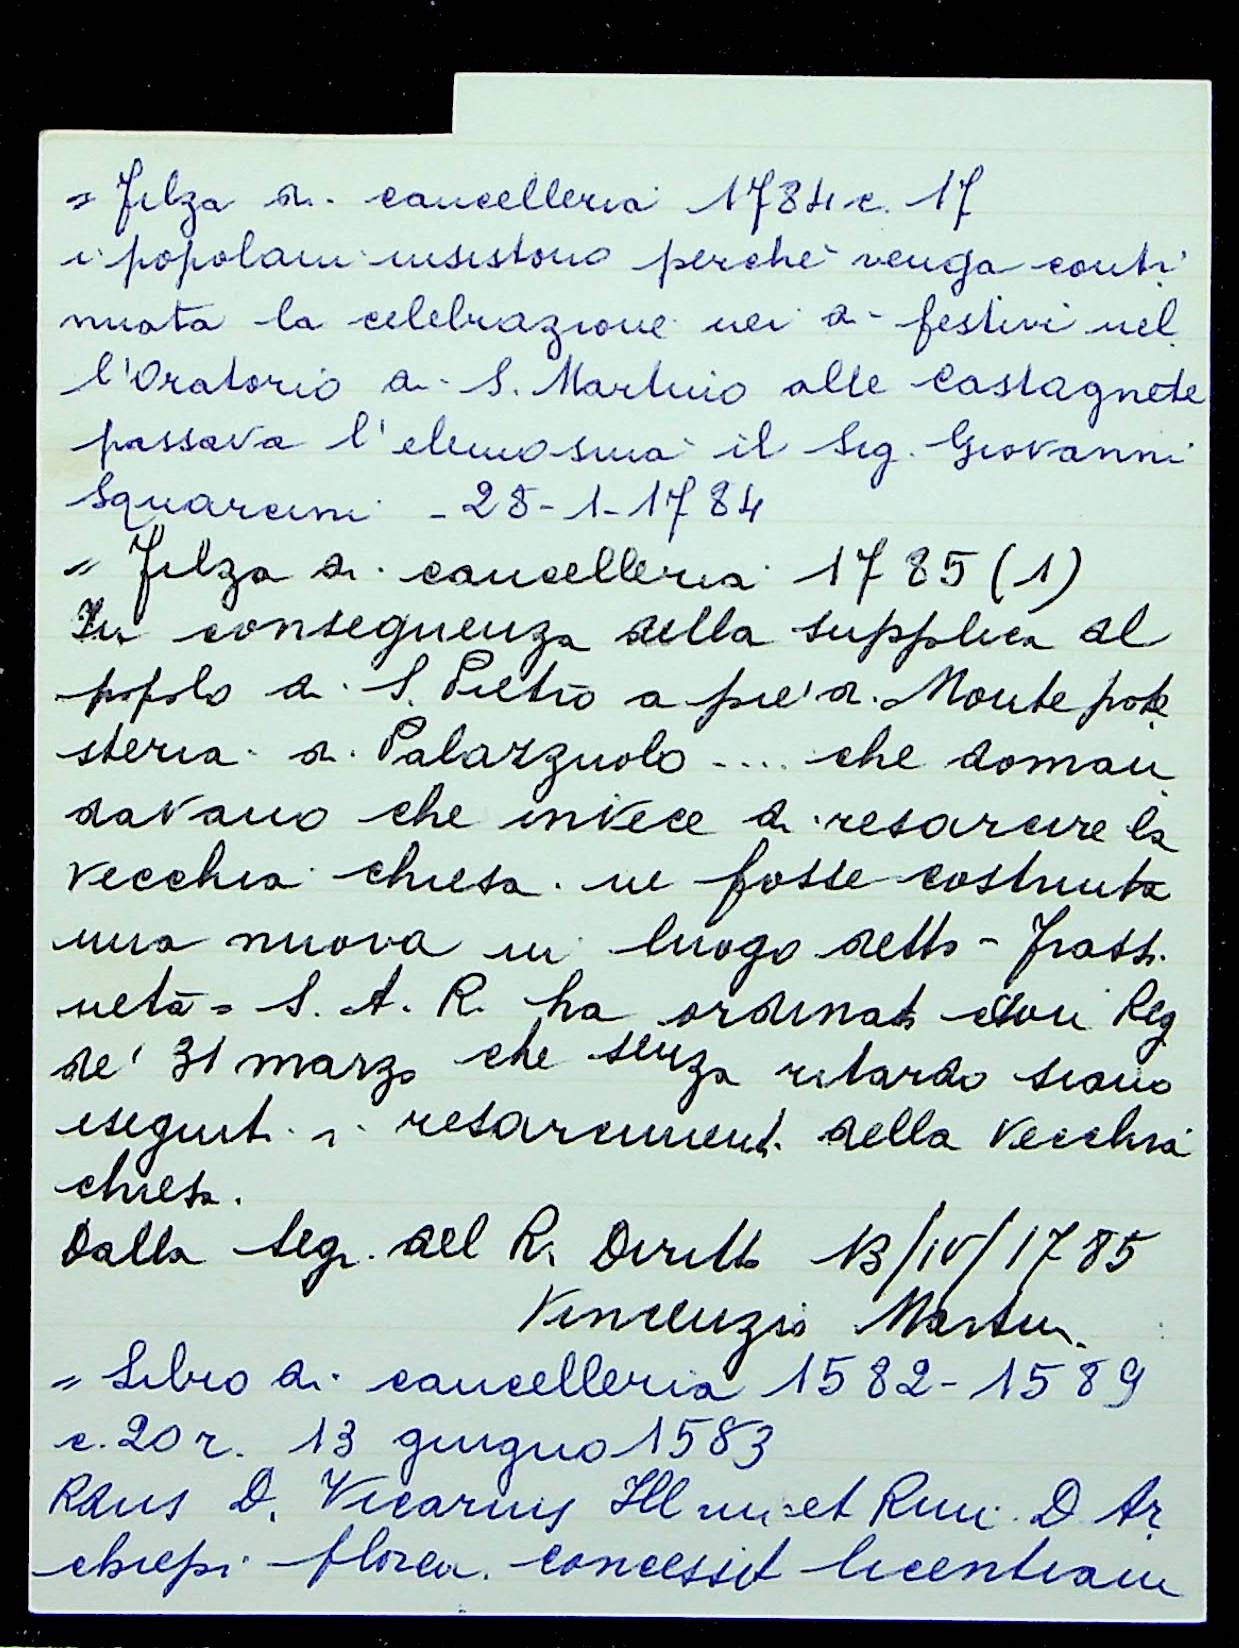 = Filza di cancelleria 1784 c. 17
i popolani insistono perchè venga conti
nuata la celebrazione nei dì festivi nel
l'Oratorio di S. Martino alle Castagnete
passava l'elemosina il Sig. Giovanni
Squarcini - 28-1-1784
= Filza di cancelleria 1785 (1)
In conseguenza della supplica del
popolo di S. Pietro a piè di Monte pote
steria di Palazzuolo .... che doman
davano che invece di resarcire la
vecchia chiesa ne fosse costruita
una nuova in luogo detto - Frassi
neta = S. A. R. ha ordinato con Reg
de' 31 marzo che senza ritardo siano
eseguiti i resarcimenti della vecchia
chiesa.
Dalla Segr. del R. Diritto 13/IV/1785
Vincenzio Martini
= Libro di cancelleria 1582-1589
c. 20 r. 13 giugno 1583
Rdus D. Vicarius Ill mi et Rmi D. Ar
chiepi floren. concessit licentiam